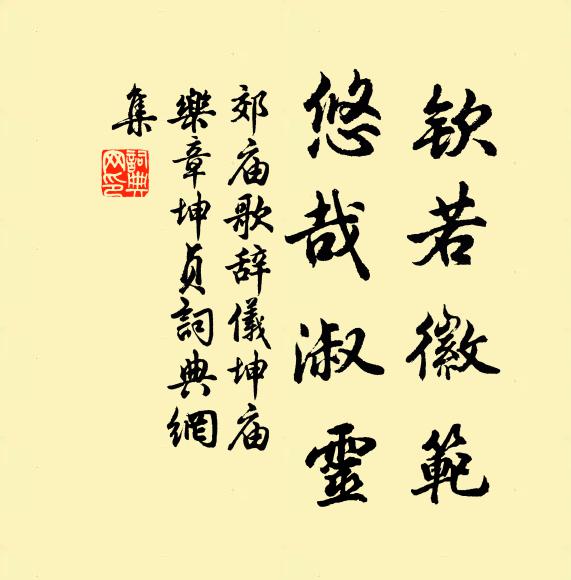 欽若徽範
悠哉淑靈
郊庙歌辞儀坤庙
樂章坤貞詞典網
集
詞典
网印